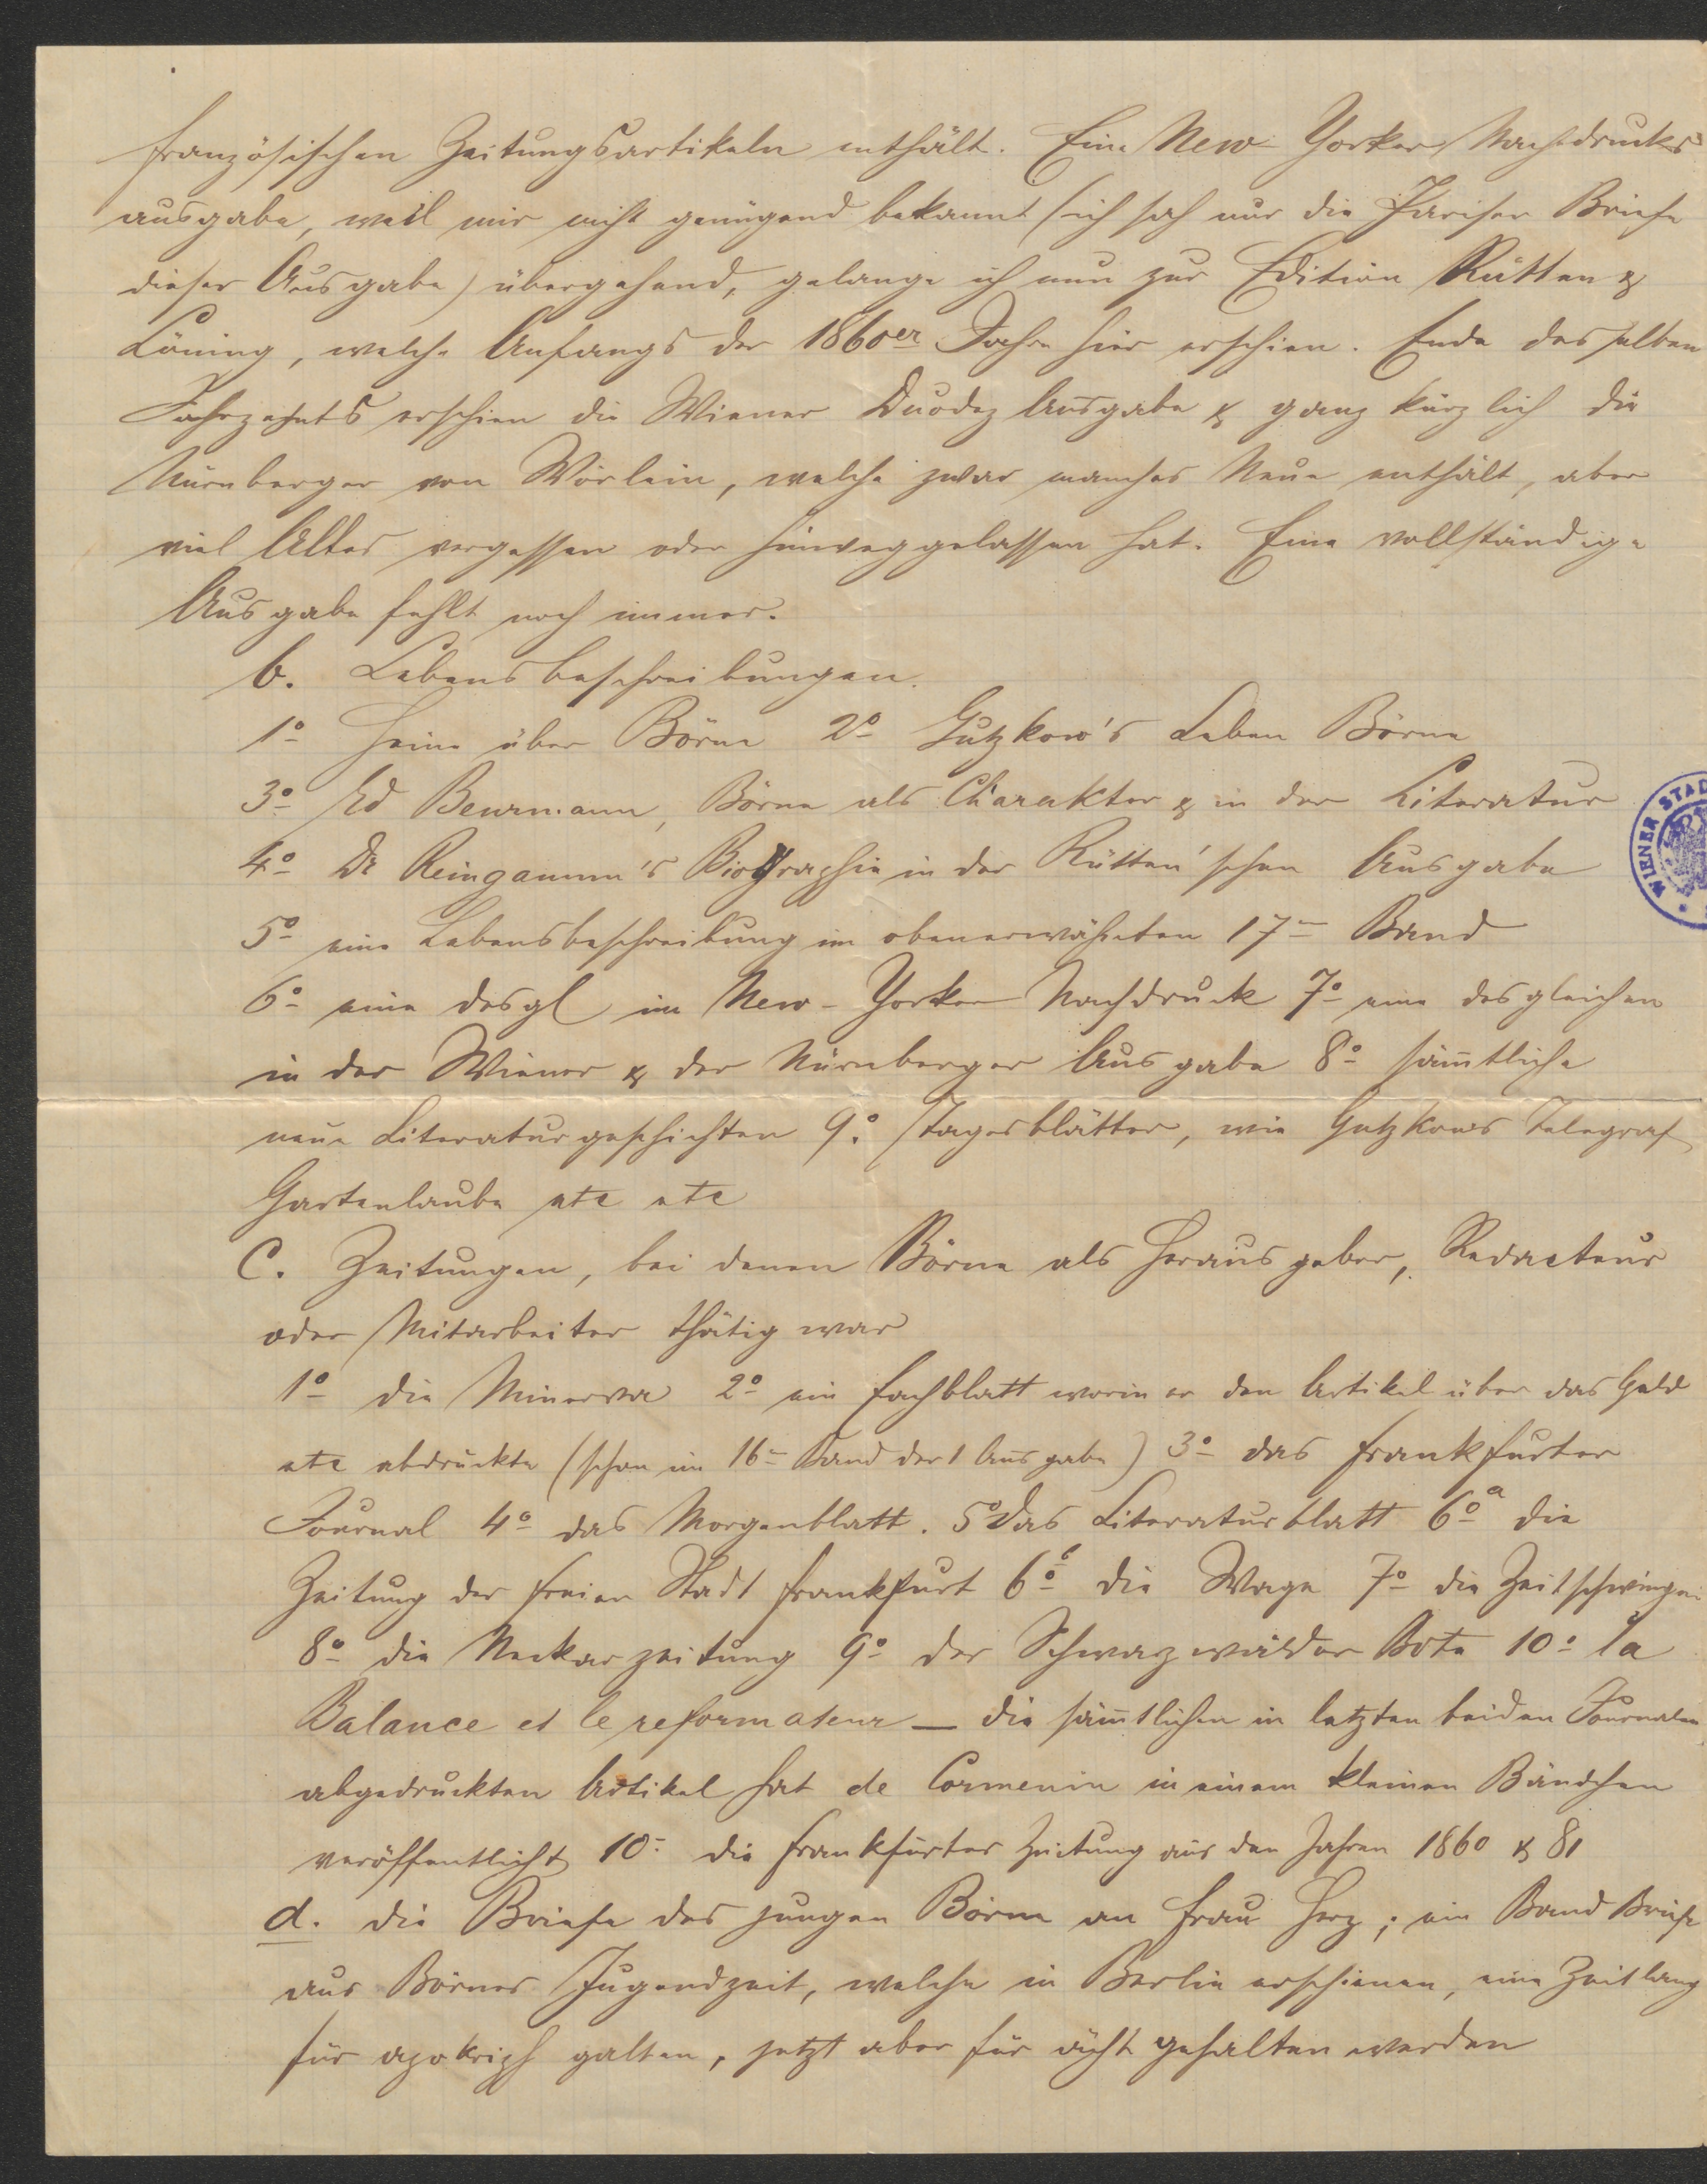 französischen Zeitungsartikeln enthält. Eine New-Yorker Nachdrucks
ausgabe, weil mir nicht genügend bekannt (ich sah nur die Pariser Briefe
dieser Ausgabe) übergehend, gelange ich nun zur Edition Rütten &
Löning, welche Anfangs der 1860er Jahre hier erschien. Ende desselben
Jahrzehnts erschien die Wiener Duodez Ausgabe & ganz kürzlich die
Nürnberger von Wörlein, welche zwar manches Neue enthält, aber
viel Altes vergessen oder hinweggelassen hat. Eine vollständige
Ausgabe fehlt noch immer.
b. Lebensbeschreibungen.
1º Heine über Börne 2º Gutzkow's Leben Börne
3º Ed Beurmann, Börne als Charakter & in der Literatur
4º Dr Reinganum's Biographie in der Rütten'schen Ausgabe
5º eine Lebensbeschreibung im obenerwähnten 17ⁿ Band
6º eine desgl im New-Yorker Nachdruck 7º eine desgleichen
in der Wiener & der Nürnberger Ausgabe 8º sämtliche
neue Literaturgeschichten 9º Tagesblätter, wie Gutzkows Telegraf,
Gartenlaube etc etc
C. Zeitungen, bei denen Börne als Herausgeber, Redacteur
oder Mitarbeiter thätig war
1º die Minerva 2º ein Fachblatt worin er den Artikel über das Geld
etc abdruckte (schon im 16ⁿ Band der 1 Ausgabe) 3º das Frankfurter
Journal 4º das Morgenblatt. 5º das Literaturblatt 6ºa die
Zeitung der freien Stadt Frankfurt 6ºb die Wage 7º die Zeitschwingen
8º die Neckarzeitung 9º der Schwarzwälder Bote 10º la
Balance et le reformateur — die sämtlichen in letzten beiden Journalen
abgedruckten Artikel hat de Cormenin in einem kleinen Bändchen
veröffentlicht 10º die Frankfurter Zeitung aus den Jahren 1860 & 81
d. die Briefe des jungen Börne an Frau Herz; ein Band Briefe
aus Börnes Jugendzeit, welche in Berlin erschienen, eine Zeitlang
für apokriph galten, jetzt aber für ächt gehalten werden
WIENER STAD